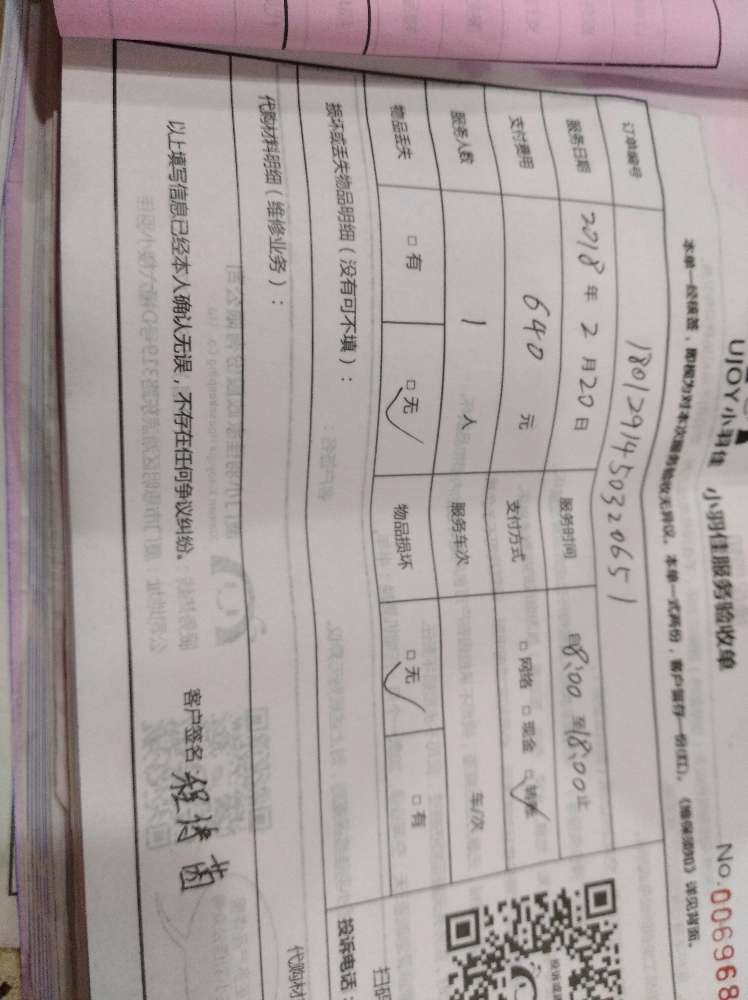 UJOY小羽佳 小羽佳服务验收单 No.006968
本单一经核签，即视为对本次服务验收无异议。本单一式两份，客户留存一份(红)。《维保须知》详见背面。
订单编号 1801291450320651
服务日期 2018年2月20日 服务时间 自8:00至18:00止
支付费用 640元 支付方式 □网络 □现金 □转账
服务人数 1人 服务车次 车/次
物品丢失 □有 □无 物品损坏 □无 □有
损坏或丢失物品明细（没有可不填）：
代购材料明细（维修业务）： 代购材
以上填写信息已经本人确认无误，不存在任何争议纠纷。 客户签名
扫码
投诉电话：